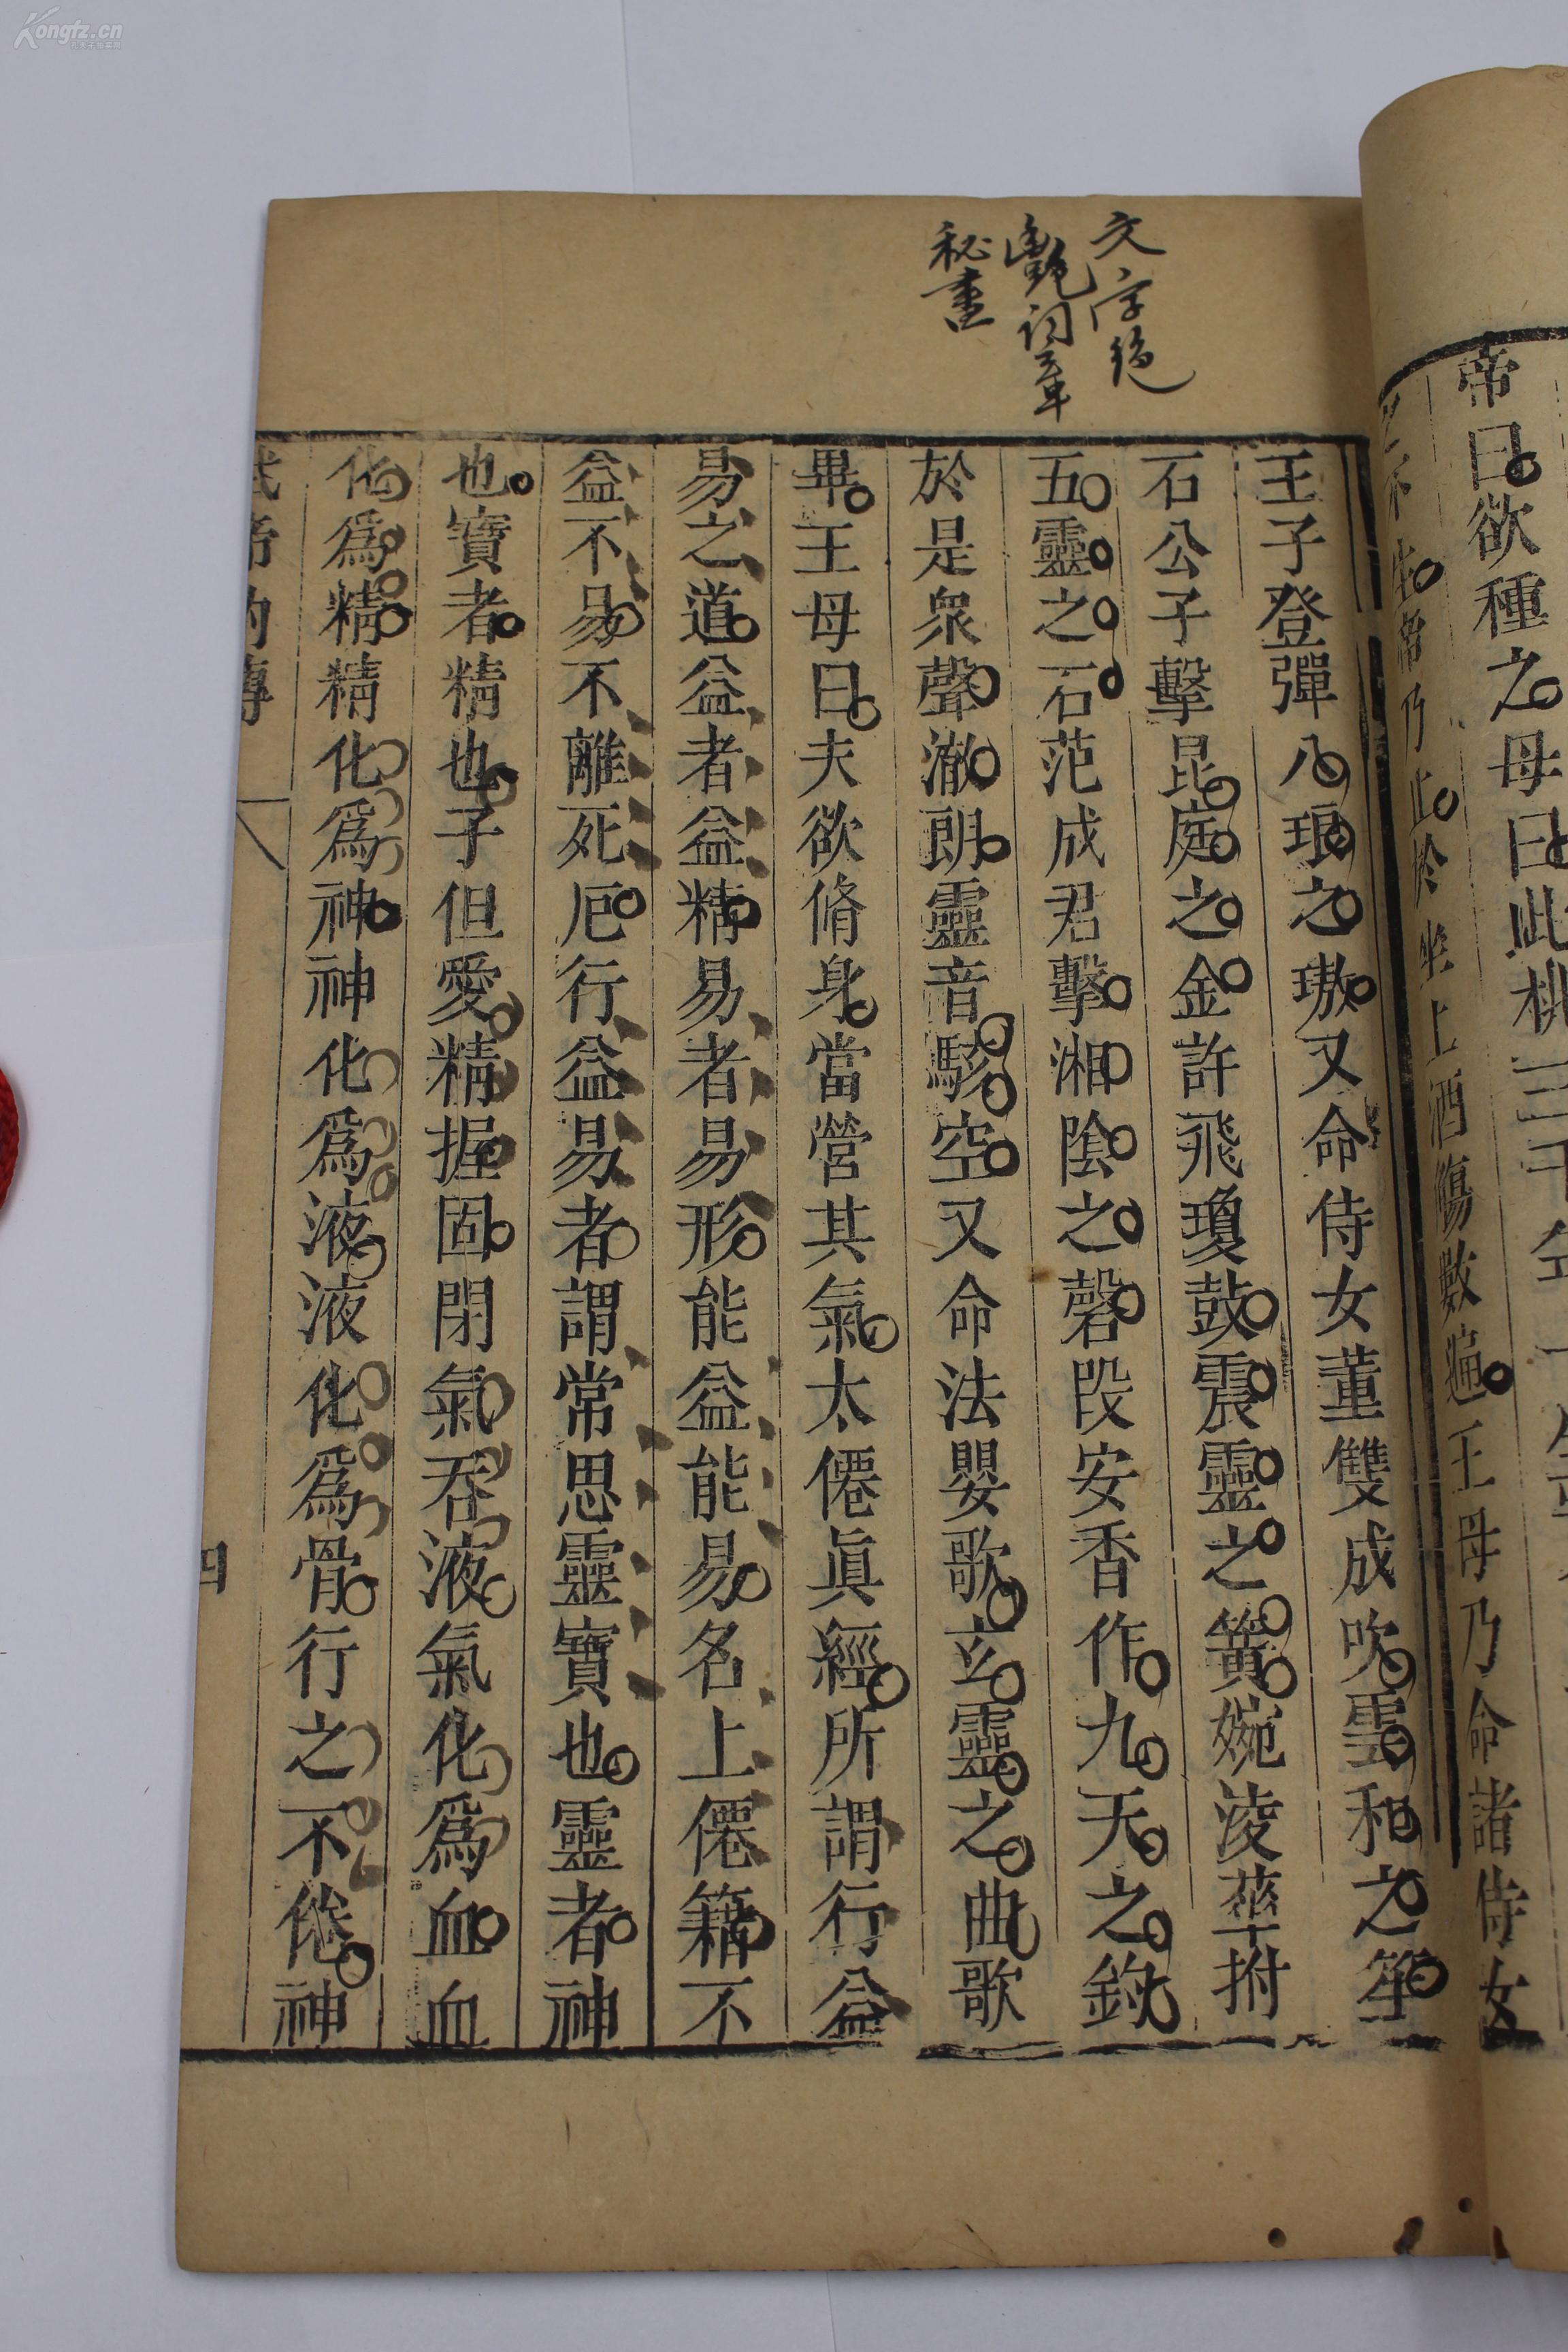 帝曰欲種之母曰此桃三千年一生
帝乃止於坐上酒觴數遍王母乃命諸侍女
王子登彈八琅之璈又命侍女董雙成吹雲和之笙
石公子擊昆庭之金許飛瓊鼓震靈之簧婉淩華拊
五靈之石范成君擊湘陰之磬段安香作九天之鈞
於是衆聲澈朗靈音駭空又命法嬰歌玄靈之曲歌
畢王母曰夫欲脩身當營其氣太僊眞經所謂行益
易之道益者益精易者易形能益能易名上僊籍不
益不易不離死厄行益易者謂常思靈寶也靈者神
也寶者精也子但愛精握固閉氣吞液氣化爲血血
化爲精精化爲神神化爲液液化爲骨行之不倦神
武帝內傳
四
文字絕
艷詞章
秘書
Kongfz.cn